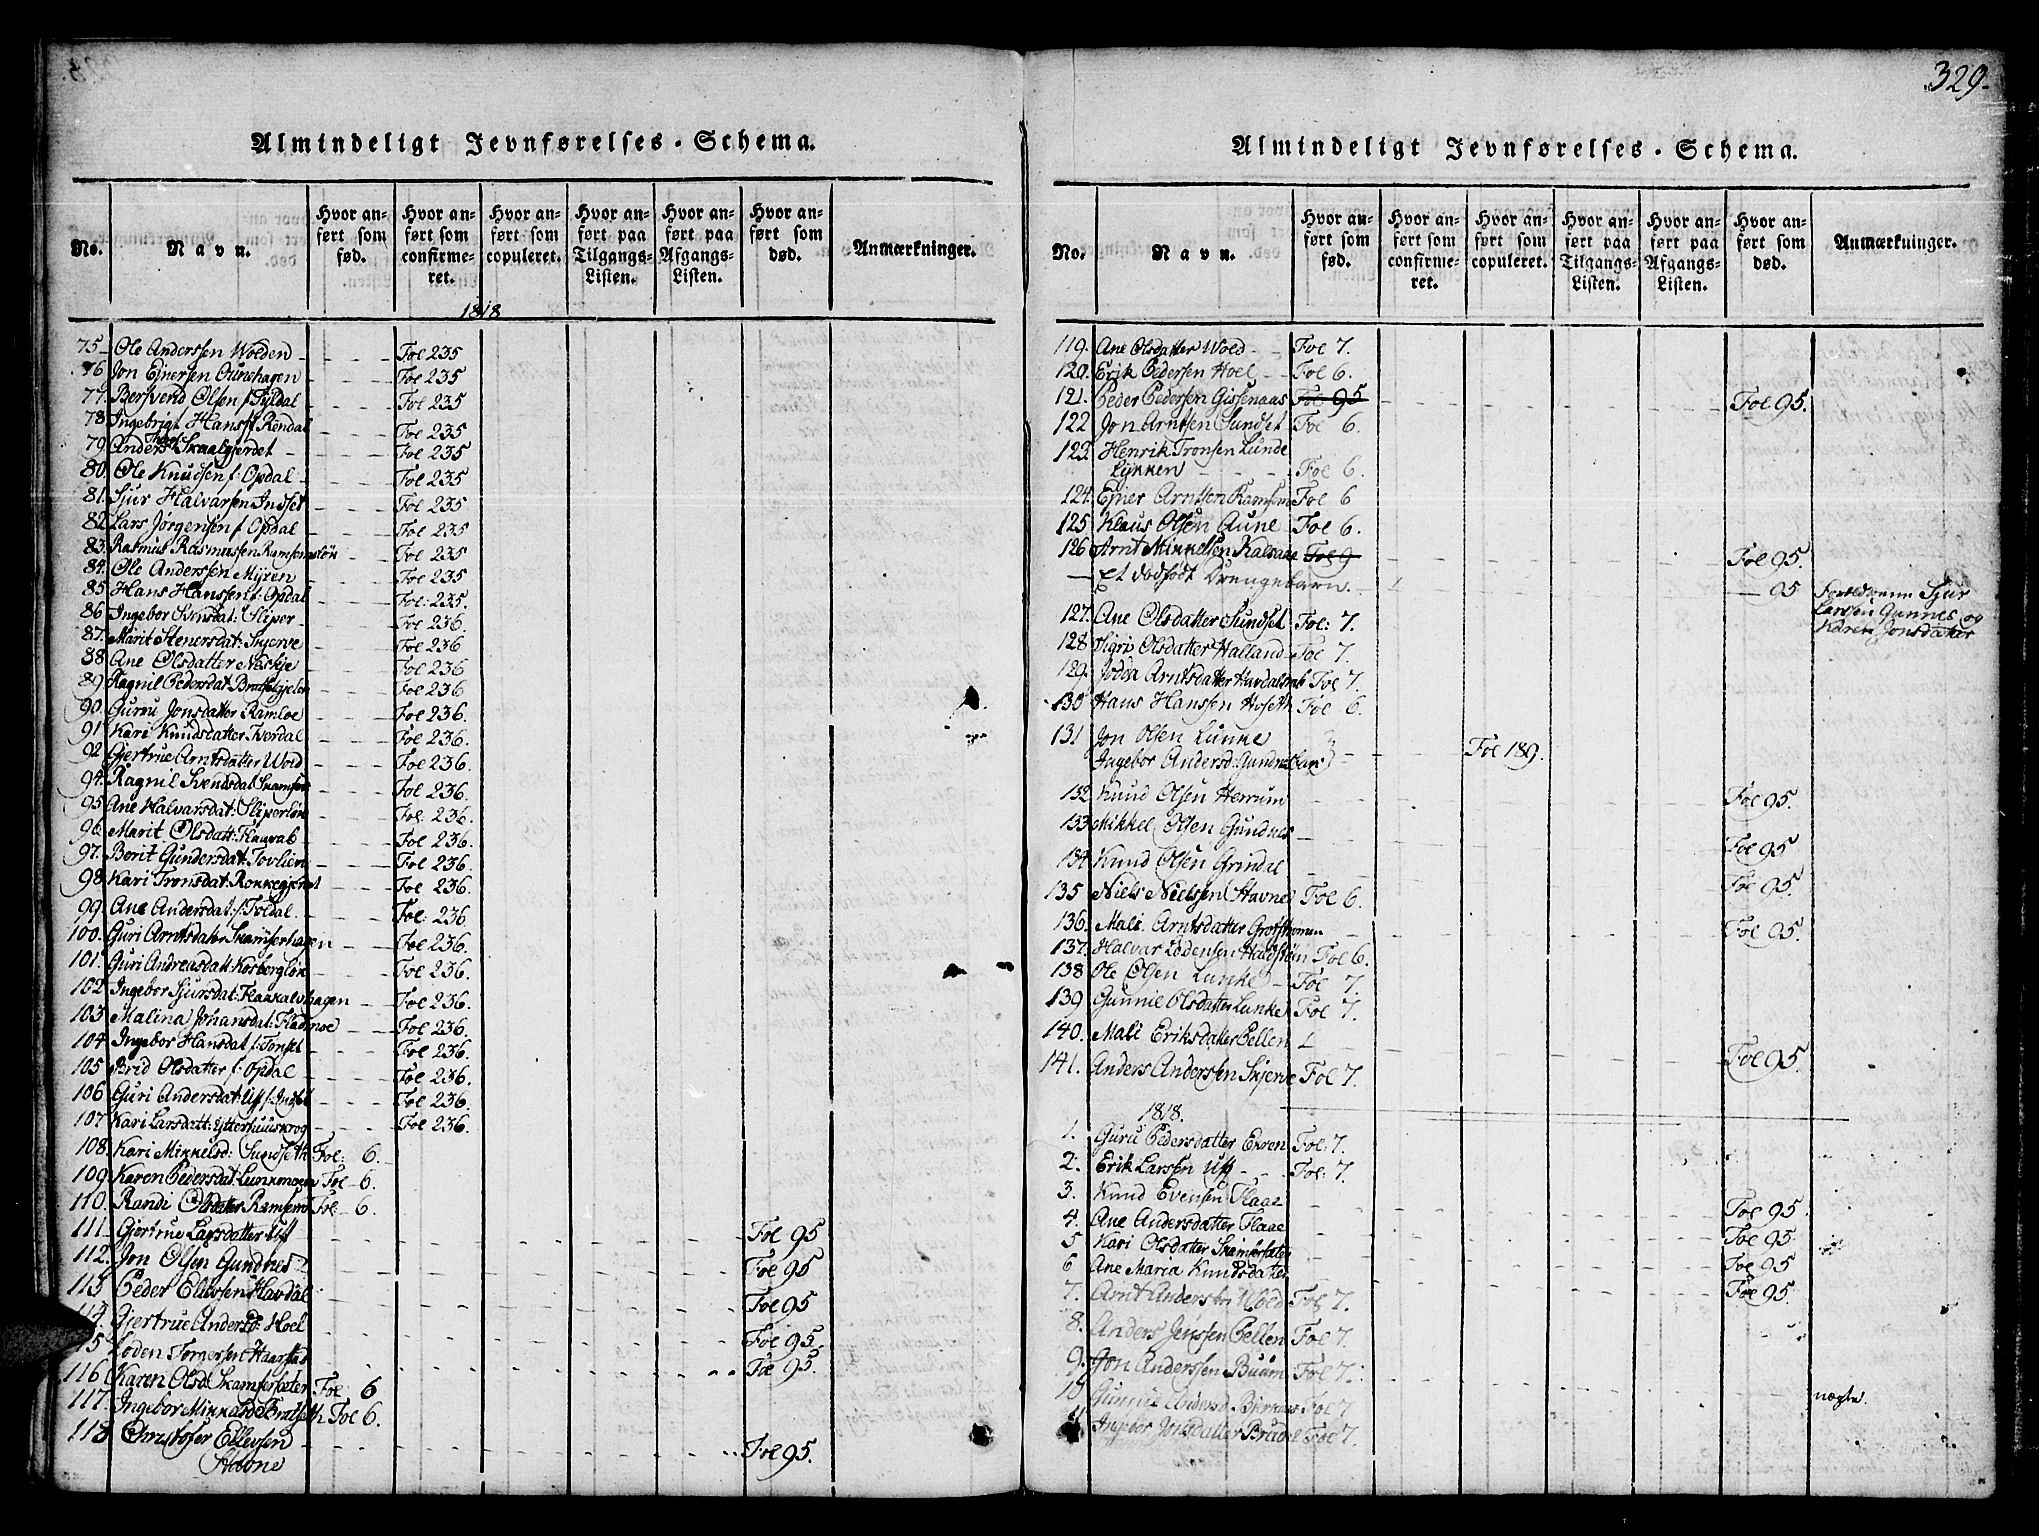 Almindeligt Jevnførelses-Schema.
No. Navn. Hvor anført som fød. Hvor anført som confirmeret. Hvor anført som copuleret. Hvor anført paa Tilgangs-Listen. Hvor anført paa Afgangs-Listen. Hvor anført som død. Anmærkninger.
1818
75 Ole Anderssen Wolden Foe 235
76 Jon Ejnersen Foe 235
77 Bersvend Olsen f: Tyldal Foe 235
78 Ingebrigt Hanss f: Rendal Foe 235
79 Anders Skaalgjerdet Foe 235
80 Ole Knudsen f: Opdal Foe 235
81. Sjur Halvarsen Indset Foe 235
82 Lars Jørgensen f: Opdal Foe 235
83. Rasmus Rasmussen Ramsemsløk Foe 235
84. Ole Anderssen Myren Foe 235
85 Hans Hanssen f: Opdal Foe: 235.
86 Ingebor Svensdat: Sliper Foe 236
87. Marit Stenersdat: Skjerve Foe 236
88 Ane Olsdatter Næskje Foe 236
89 Ragnil Pedersdat Foe 236
90. Guru Jonsdatter Ramloe Foe 236.
91 Kari Knudsdatter Sverdal Foe 236.
92 Gjertrue Arntsdatter Wold Foe 236.
94. Ragnil Svendsdat: Foe 236.
95 Ane Halvarsdat: Sliperløk Foe: 236.
96. Marit Olsdatt: Flaavab Foe 236.
97. Berit Gundersdat: Tovlien Foe 236.
98. Kari Tronsdat: Rokkegjerdet Foe 236.
99. Ane Andersdat: f: Foldal. Foe: 236
100. Guri Arntsdatter Skamferhagen Foe 236.
101. Guri Andreasdatt: Kosbergløk Foe 236.
102 Ingebor Sjursdat: Flaakalvhagen Foe 236.
103 Malina Johansdat: Fladmoe Foe 236.
104 Ingebor Hansdat f: Tønset Foe 236.
105 Brid Olsdatter f: Opdal Foe 236.
106 Guri Andersdat: Uff f: Indset Foe 236.
107 Kari Larsdatt: Ytterhuuskrog Foe 236.
108. Kari Mikkelsd: Sundseth Foe: 6.
109. Karen Pedersdat: Lunkmoen Foe 6.
110. Randi Olsdatter Ramsem Foe 6.
111. Gjertrue Larsdatter Uff Foe 95
112. Jon Olsen Gundnes Foe 95
113 Peder Ellessen Havdal Foe 95
114. Gjertrue Andersd: Hoel Foe 95.
115 Loden Torgersen Haarstad Foe 95.
116 Karen Olsd Skamfersæter Foe 6
117. Ingebor Mikkelsd: Bratseth Foe 6.
118 Christofer Ellevsen Foe 95.
Havne
329.
Almindeligt Jevnførelses-Schema.
No. Navn. Hvor anført som fød. Hvor anført som confirmeret. Hvor anført som copuleret. Hvor anført paa Tilgangs-Listen. Hvor anført paa Afgangs-Listen. Hvor anført som død. Anmærkninger.
119. Ane Olsdatter Wold Foe 7.
120. Erik Pedersen Hoel Foe 6.
121. Peder Pedersen Gissenaas Foe 95 Foe 95.
122 Jon Arntsen Sundset Foe 6.
123. Henrik Tronsen Lunde
Lykken Foe 6.
124. Ejner Arntsen Ramsem Foe 6
125 Klaus Olsen Aune Foe 6.
126 Arnt Mikkelsen Foe 9 Foe 95.
— Et dødfødt Drengebarn. — 95 Forældrene Sjur
Larsen Gunnes og
Karen Jonsdatter
127. Ane Olsdatter Sundset Foe: 7.
128 Sigri Olsdatter Halland Foe 7.
129. Jodda Arntsdatter Foe 7.
130 Hans Hanssen Hoseth Foe 6.
131 Jon Olsen Lunke
Ingebor Andersd: Foe 189.
132 Knud Olsen Herrem Foe 95.
133 Mikkel Olsen Gundnes Foe 95
134 Knud Olsen Grindal Foe 95
135 Niels Nielssen Stavne Foe 6.
136. Mali Arntsdatter Foe 95.
137. Halvar Lodensen Foe 6.
138 Ole Olsen Lunke Foe 7.
139 Gunnil Olsdatter Lunke Foe 7.
140. Mali Eriksdatter Pellen Foe 95
141. Anders Anderssen Skjerve Foe 7.
1818.
1. Guru Pedersdatter Ekren Foe: 7.
2. Erik Larsen Uff Foe: 7.
3. Knud Evensen Flaae Foe 95.
4. Ane Andersdatter Flaae Foe 95.
5 Kari Olsdatter Skamfersæter Foe 95
6 Ane Maria Knudsdatter Foe 95.
7. Arnt Anderssen Wold Foe 7.
8. Anders Jenssen Pellen Foe 7.
9. Jon Anderssen Buum Foe 7.
10 Gunnil Andersd Foe 7 nægte.
11 Ingebor Jonsdatter Foe 7.